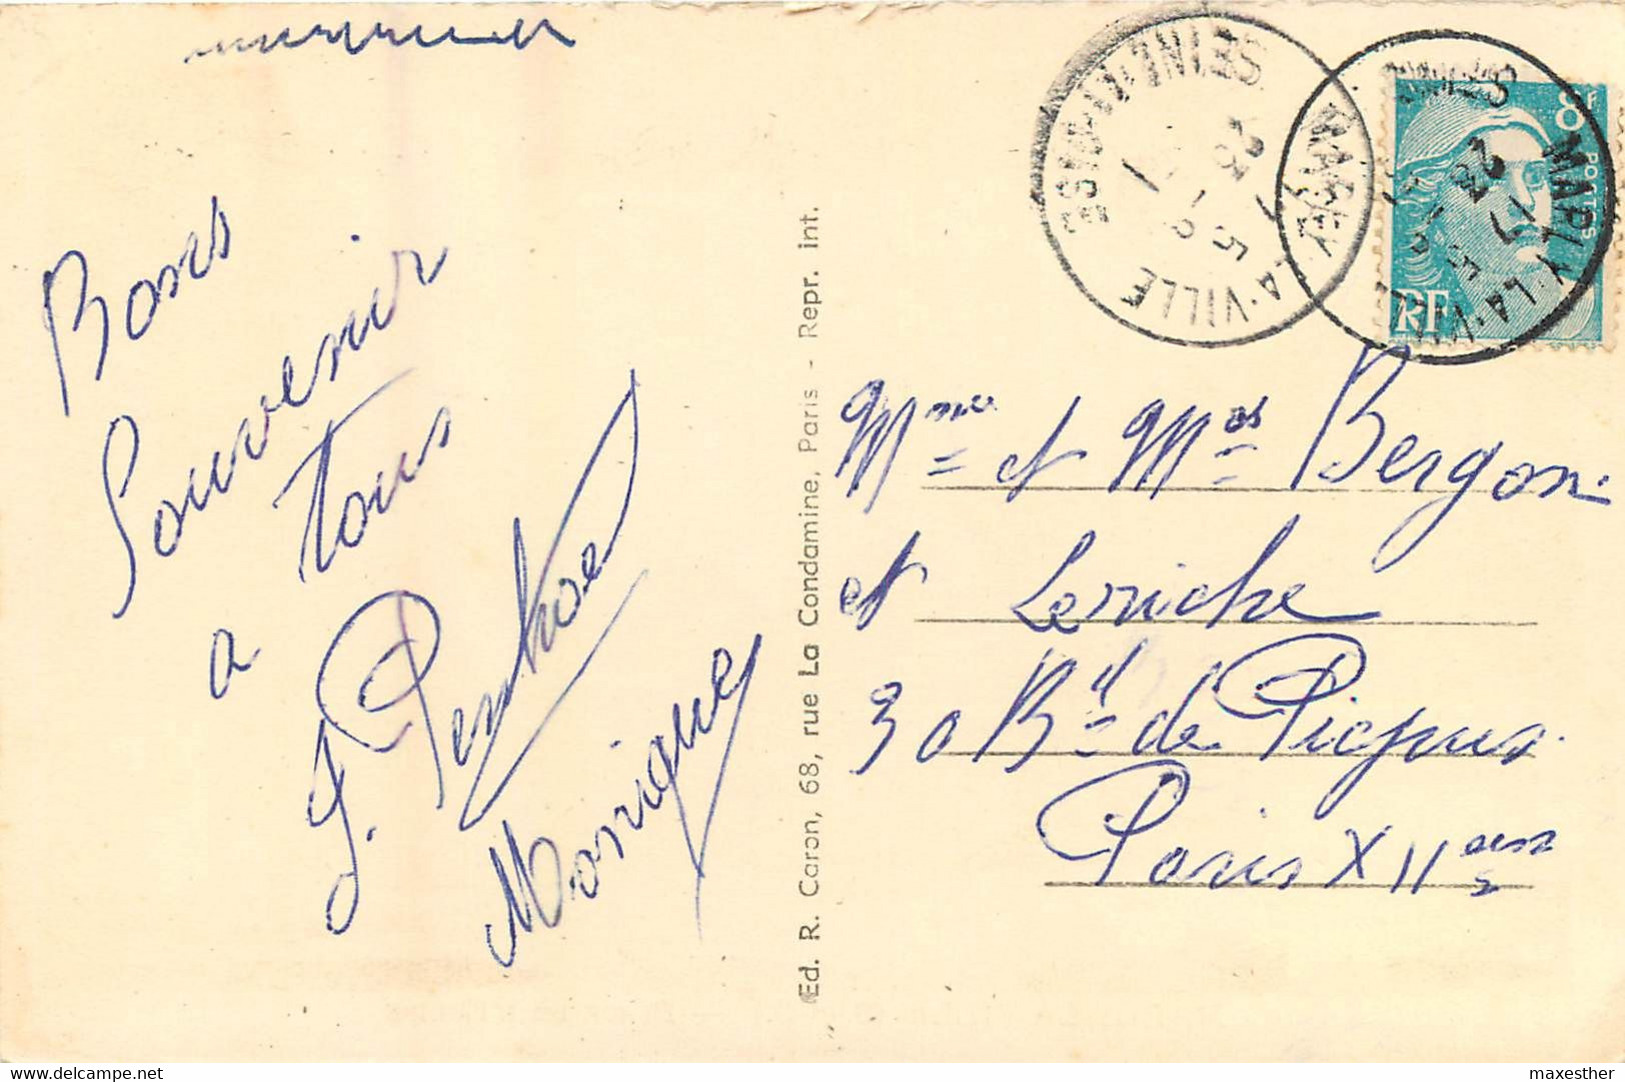 Bons
Souvenir
a tous
J. Penhoe
Monique
Ed. R. Caron, 68, rue La Condamine, Paris - Repr. int.
MARLY-LA-VILLE
SEINE-ET-OISE
MARLY-LA-VILLE
8F
POSTES
RF
Mme et Mrs Bergon
et Leriche
30 Bd de Picpus
Paris XII
delcampe.net
maxesther